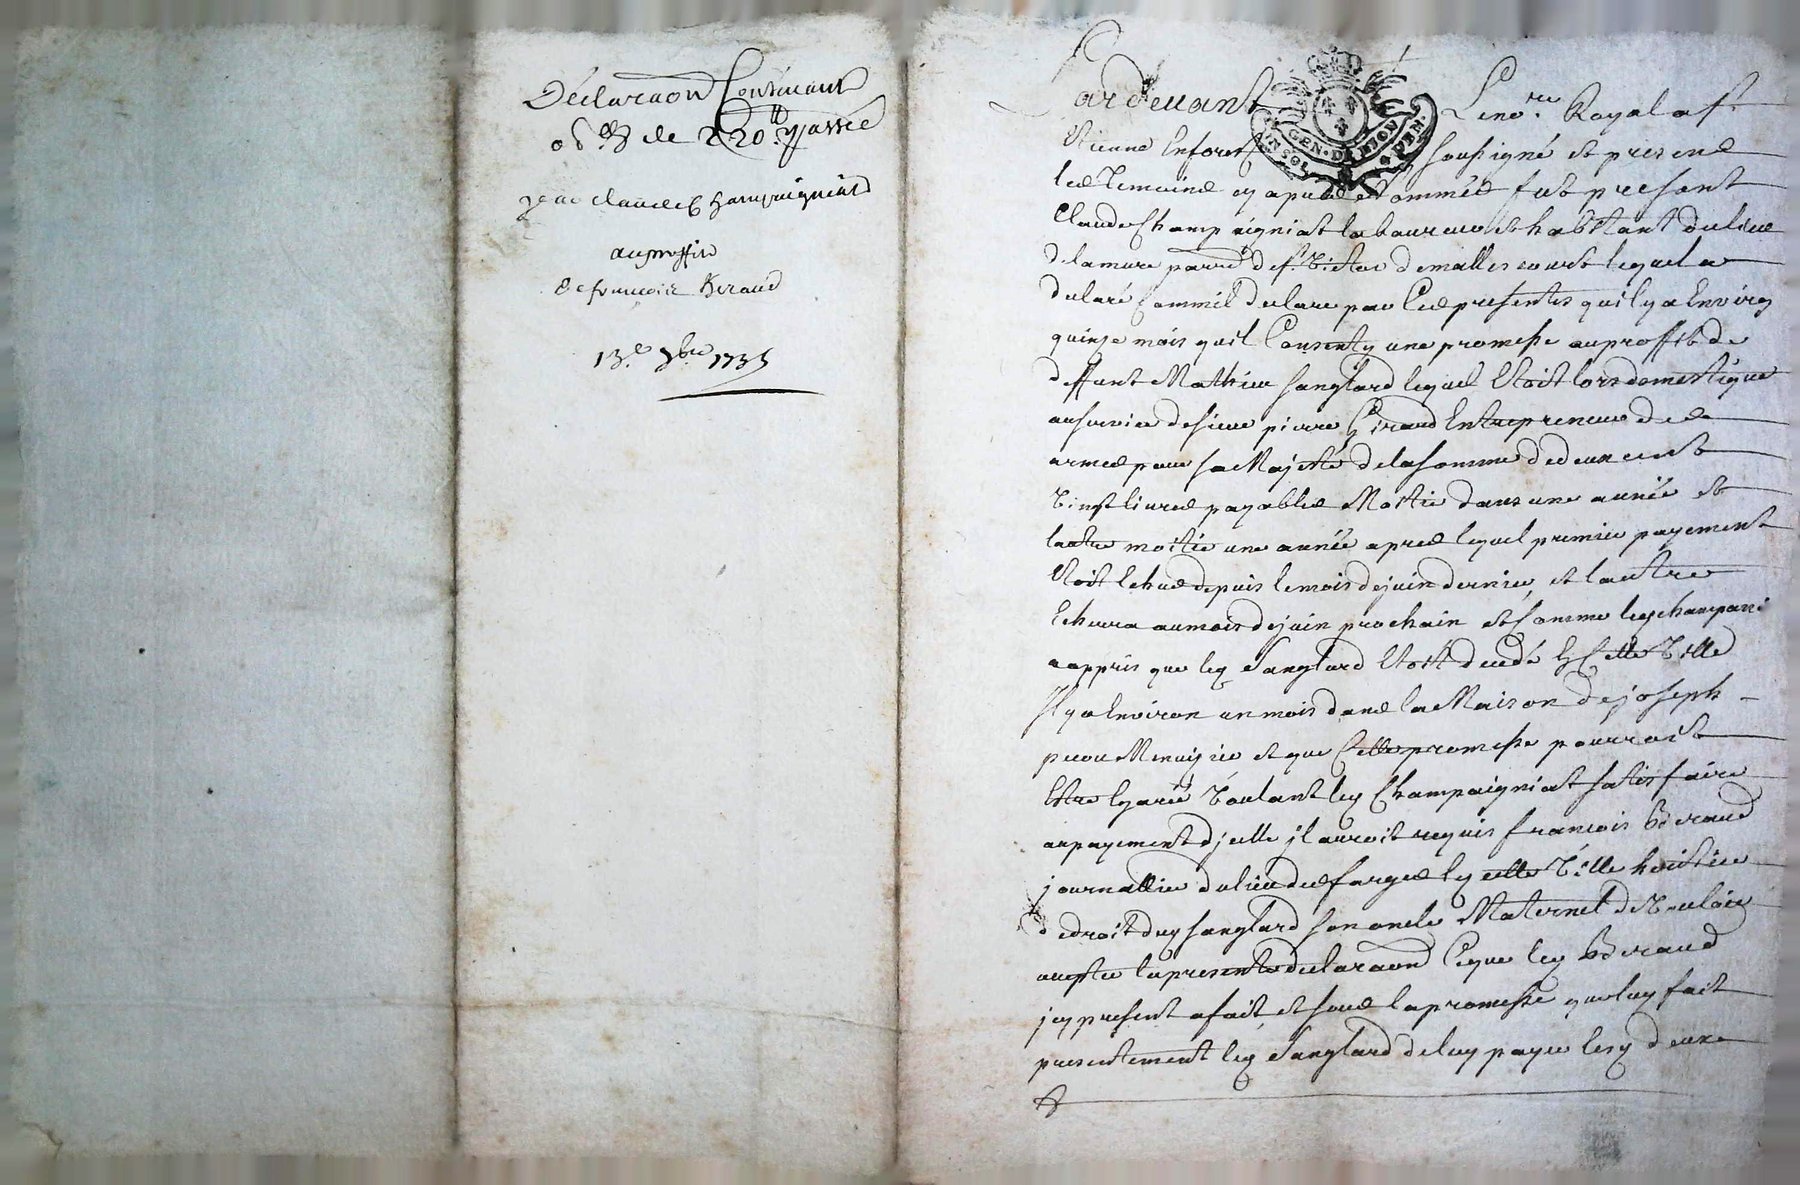 Déclaraõn Contenant
obõn de 220ll passée
par claude Champaigniat
au proffit
de francois Beraud
13e 9bre 1735
Pardevant Le no.re Royal a St
Etienne En forest soussigné et presens
les Temoins cy apres nommés fut present
Claude Champaigniat laboureur et habitant du lieu
de la mure parre de St. Victor de mallescourt lequel a
declaré comme il declare par Ces presentes quil y a Environ
quinze mois quil Consenty une promesse au proffit de
deffunt Mathieu sanglard lequel Etoit lors domestique
au service de sieur pierre Girard Entrepreneur des
armes pour sa Majesté de la somme de deux cent
Vingt livres payables Moitié dans une année et
lautre moitié une année apres lequel premier payement
Etoit Echue depuis le mois de juin dernier, et lautre
Echerra au mois de juin prochain et comme ley champani
a appris que ley Sanglard Etoit decedé En Cette Ville
Il y a Environ un mois dans la Maison de joseph
Menuizier et que Cette promesse pourroit
Etre Egarée Voulant ley Champaigniat satisfaire
au payement dicelle il auroit requis francois Beraud
journallier du lieu des farges En cette Ville heritier
de droit dud sanglard son oncle Maternel de Vouloir
accepter la presente declaraõn Ce que ley Beraud
icy present a fait et sous la promesse que luy fait
presentement ley Sanglard de luy payer lesd deux